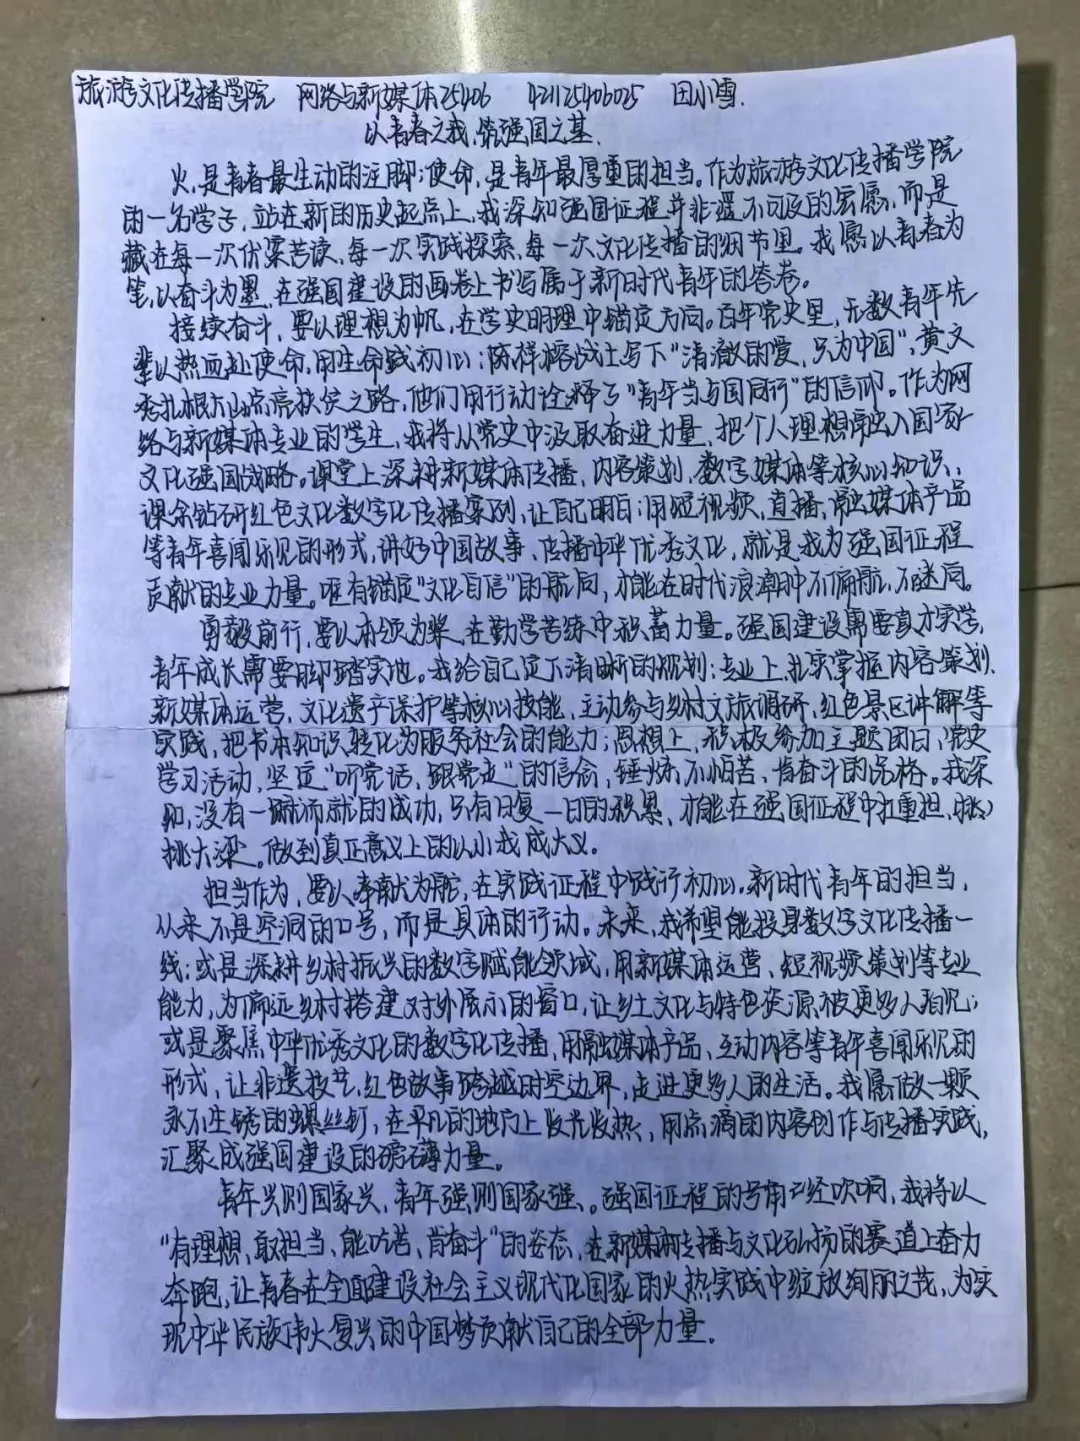 旅游文化传播学院 网络与新媒体25406 421125406025 田小雪.
以青春之我,筑强国之基.
火,是青春最生动的注脚;使命,是青年最厚重的担当。作为旅游文化传播学院
的一名学子,站在新的历史起点上,我深知强国征程并非遥不可及的宏愿,而是
藏在每一次伏案苦读,每一次实践探索,每一次文化传播的细节里。我愿以青春为
笔,以奋斗为墨,在强国建设的画卷上书写属于新时代青年的答卷。
接续奋斗,要以理想为帆,在学史明理中锚定方向。百年党史里,无数青年先
辈以热血赴使命,用生命践初心:陈祥榕战士写下“清澈的爱,只为中国”,黄文
秀扎根大山点亮扶贫之路,他们用行动诠释了“青年当与国同行”的信仰。作为网
络与新媒体专业的学生,我将从党史中汲取奋进力量,把个人理想融入国家
文化强国战略。课堂上深耕新媒体传播、内容策划、数字媒体等核心知识,
课余钻研红色文化数字化传播案例,让自己明白:用短视频、直播、融媒体产品
等青年喜闻乐见的形式,讲好中国故事、传播中华优秀文化,就是我为强国征程
贡献的专业力量。唯有锚定“文化自信”的航向,才能在时代浪潮中不偏航、不迷向。
勇毅前行,要以本领为桨,在勤学苦练中积蓄力量。强国建设需要真才实学,
青年成长需要脚踏实地。我给自己定下清晰的规划:专业上,扎实掌握内容策划、
新媒体运营、文化遗产保护等核心技能,主动参与乡村文旅调研,红色景区讲解等
实践,把书本知识转化为服务社会的能力;思想上,积极参加主题团日、党史
学习活动,坚定“听党话、跟党走”的信念,锤炼不怕苦、肯奋斗的品格。我深
知,没有一蹴而就的成功,只有日复一日的积累,才能在强国征程中扛重担、
挑大梁。做到真正意义上的以小我成大义。
担当作为,要以奉献为舵,在实践征程中践行初心。新时代青年的担当,
从来不是空洞的口号,而是具体的行动。未来,我希望能投身数字文化传播一
线:或是深耕乡村振兴的数字赋能领域,用新媒体运营、短视频策划等专业
能力,为偏远乡村搭建对外展示的窗口,让乡土文化与特色资源被更多人看见;
或是聚焦中华优秀文化的数字化传播,用融媒体产品、互动内容等青年喜闻乐见的
形式,让非遗技艺、红色故事跨越时空边界,走进更多人的生活。我愿做一颗
永不生锈的螺丝钉,在平凡的地方上发光发热,用点滴的内容创作与传播实践,
汇聚成强国建设的磅礴力量。
青年兴则国家兴,青年强则国家强、。强国征程的号角已经吹响,我将以
“有理想、敢担当、能吃苦、肯奋斗”的姿态,在新媒体传播与文化弘扬的赛道上奋力
奔跑,让青春在全面建设社会主义现代化国家的火热实践中绽放绚丽之花,为实
现中华民族伟大复兴的中国梦贡献自己的全部力量.